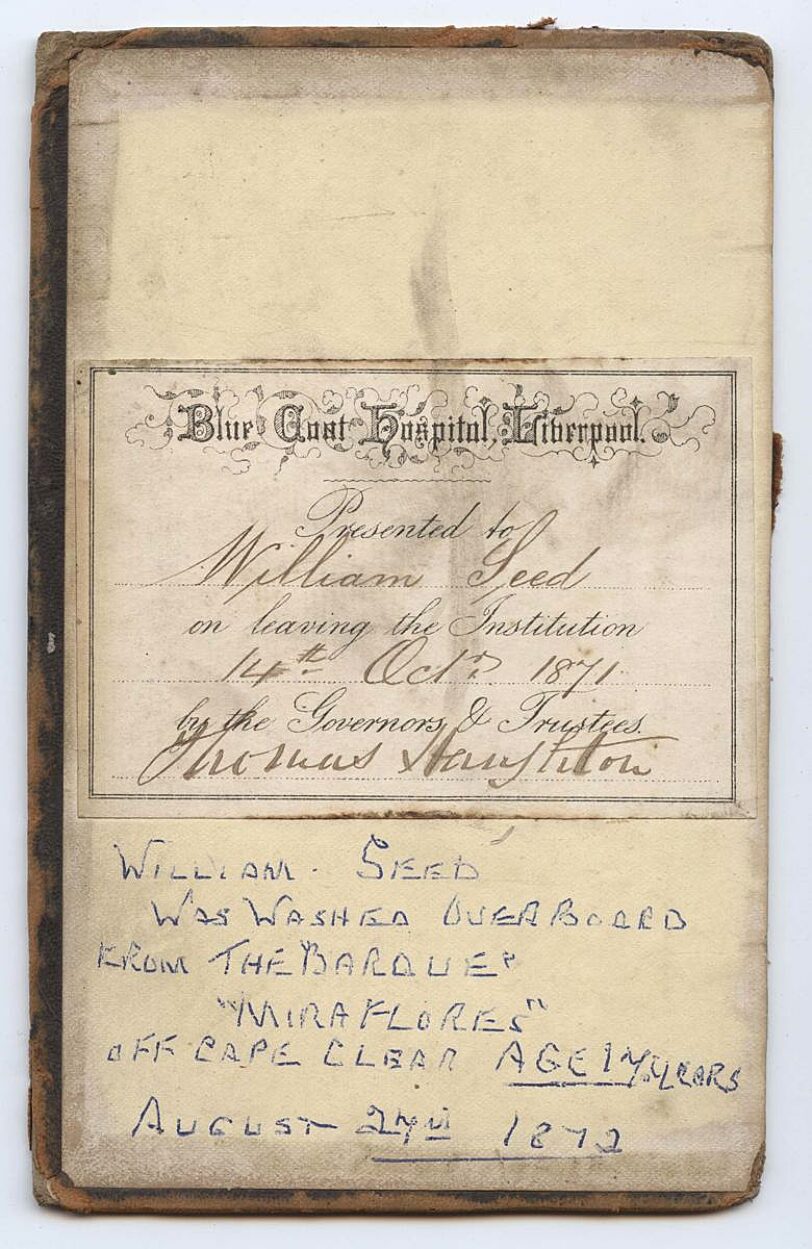 Blue Coat Hospital, Liverpool.
Presented to
William Seed
on leaving the Institution
14th Octr. 1871
by the Governors & Trustees.
Thomas Haughton
WILLIAM. SEED
WAS WASHED OVERBOARD
FROM THE BARQUE
"MIRAFLORES"
OFF CAPE CLEAR AGE 17 YEARS
AUGUST 1872